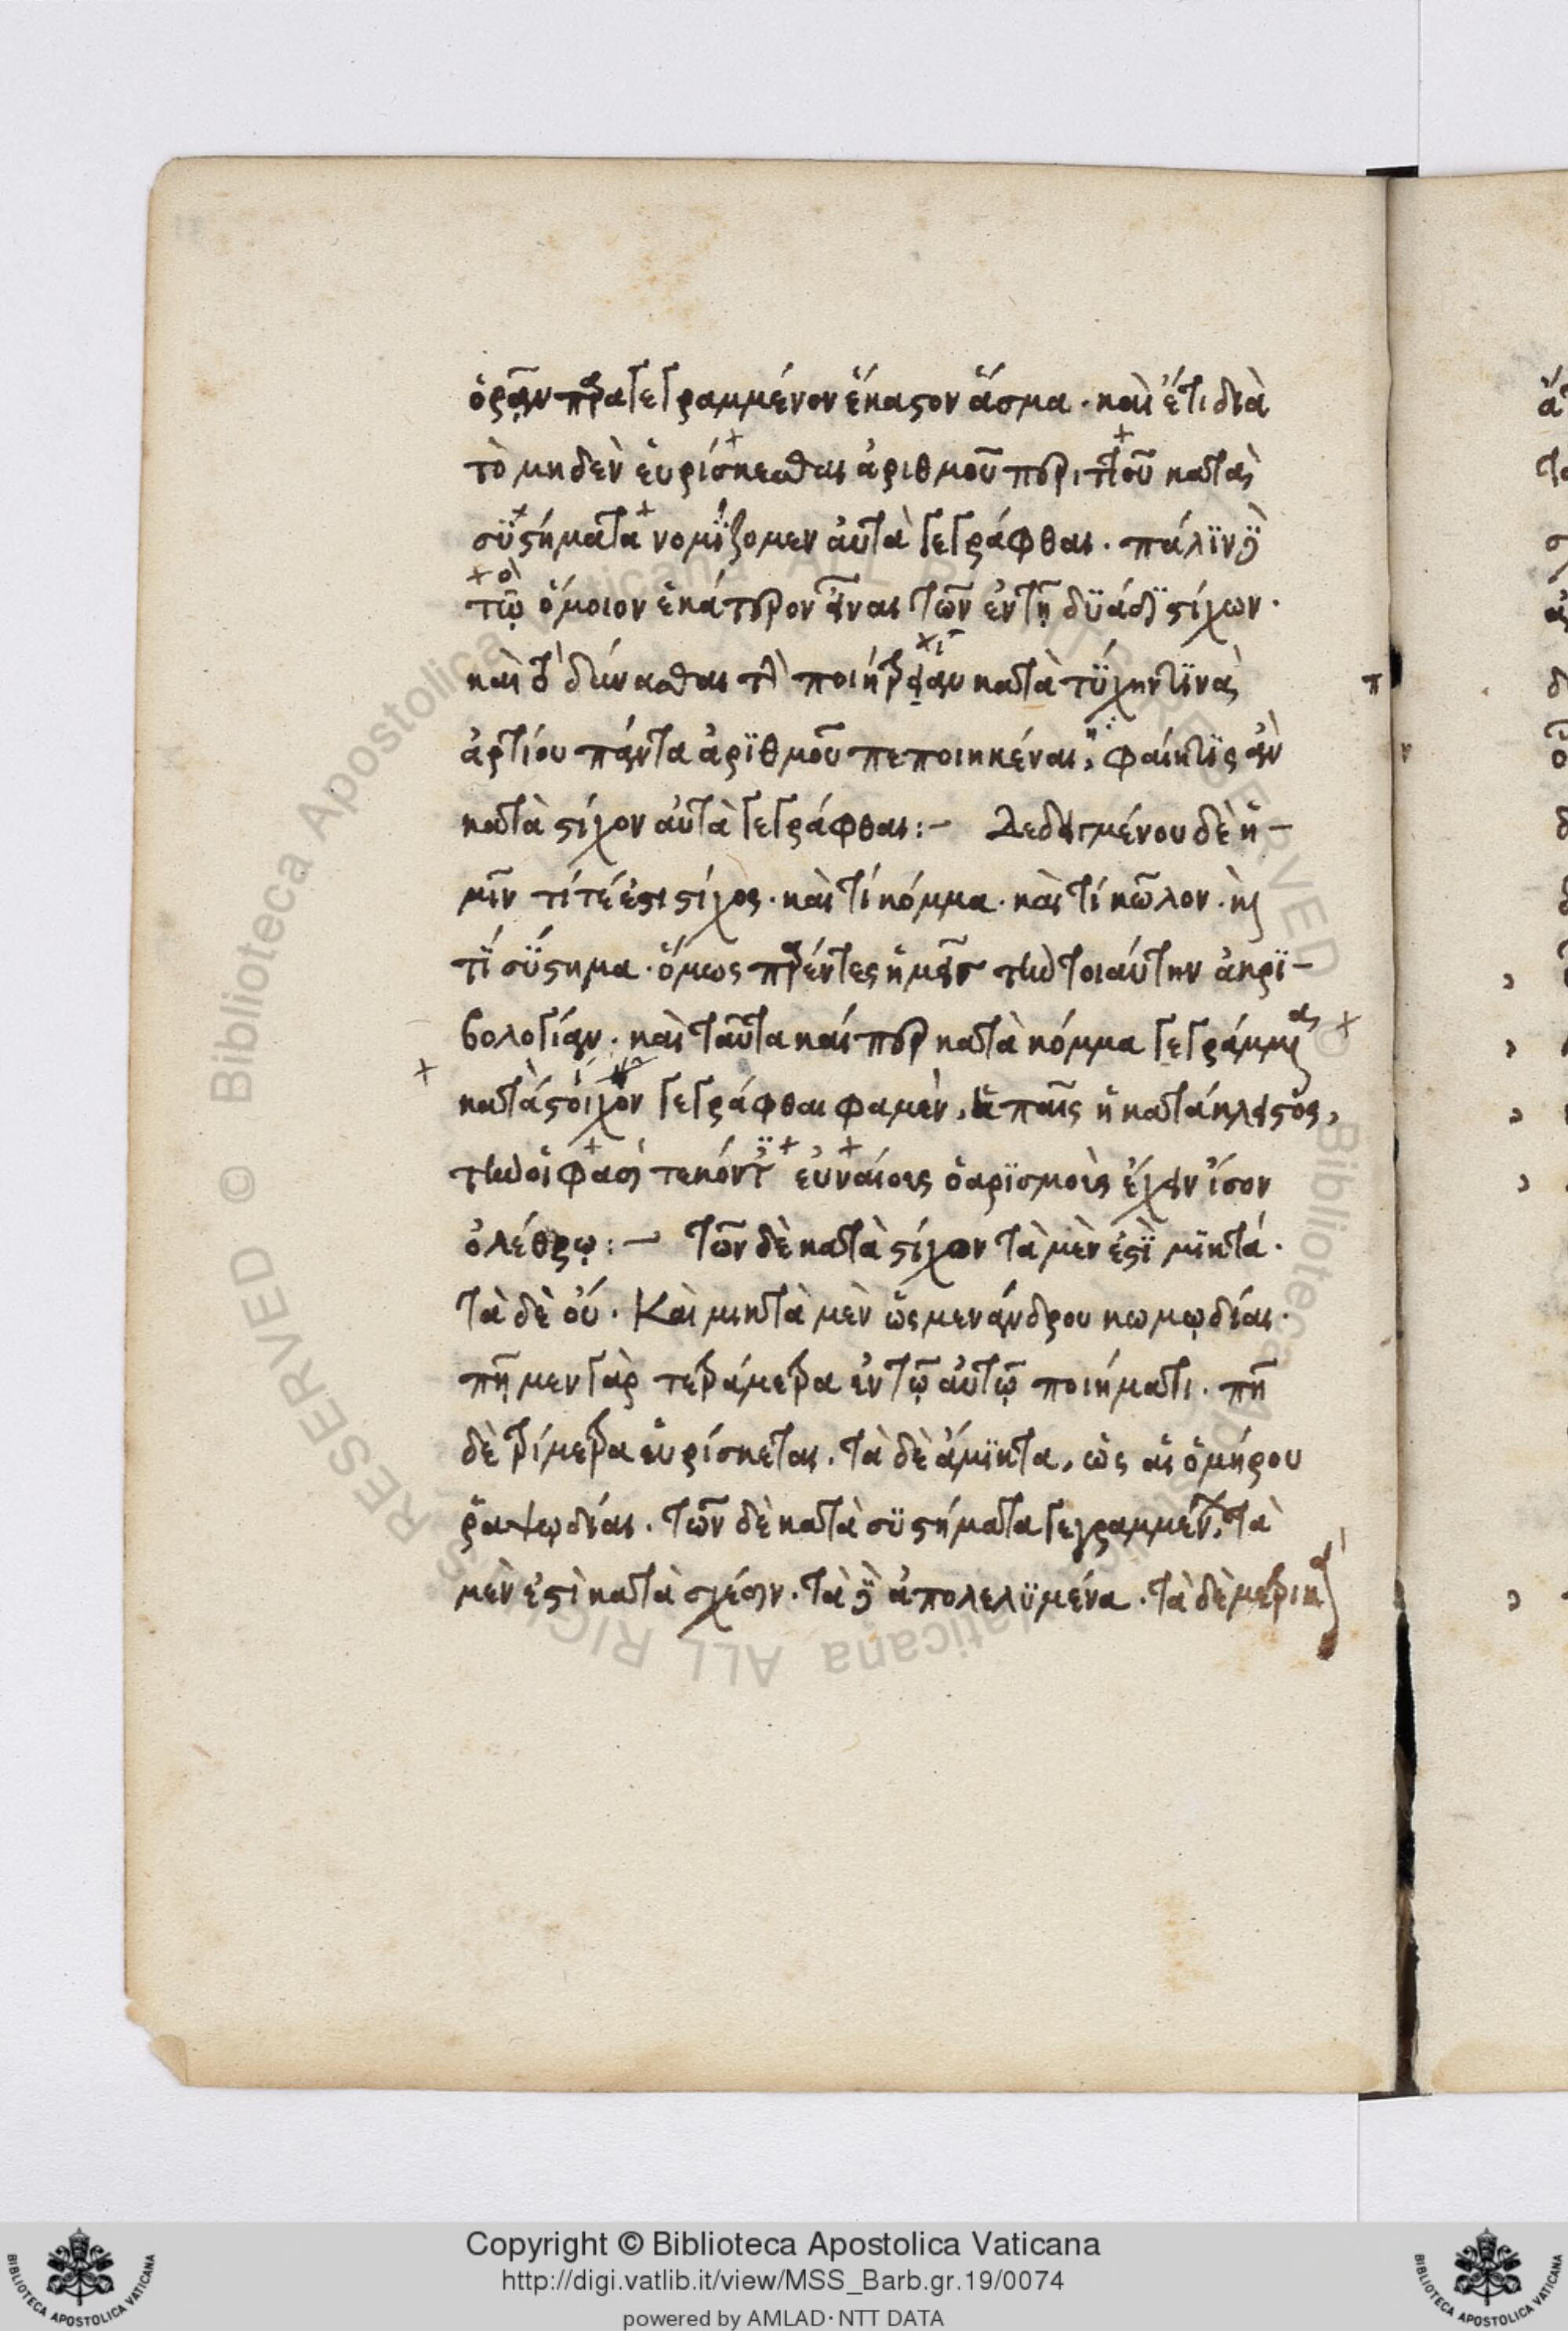 ὁρᾶν παραγεγραμμένον ἕκαστον ἆσμα. καὶ ἔτι διὰ
τὸ μηδὲν εὑρίσκεσθαι ἀριθμοῦ περιττοῦ κατὰ
σϋστήματα νομΐζομεν αὐτὰ γεγράφθαι. πάλϊν δὲ
τῷ ὅμοιον ἑκάτερον εἶναι τῶν ἐν τῇ δϋάδϊ στίχων.
καὶ τὸ δύνασθαι τὸν ποιητὴν κατὰ τύχην τϊνὰ
ἀρτίου πάντα ἀρϊθμοῦ πεποιηκέναι, φαίη τϊς ἂν
κατὰ στίχον αὐτὰ γεγράφθαι:— Δεδειγμένου δὲ ἡ-
μῖν τί τέ ἐστι στίχος. καὶ τί κόμμα. καὶ τί κῶλον. καὶ
τί σύστημα. ὅμως παρέντες ἡμεῖς τὴν τοιαύτην ἀκρϊ-
βολογίαν. καὶ ταῦτα καίπερ κατὰ κόμμα γεγραμμένα
κατὰ στίχον γεγράφθαι φαμὲν, ἡ κατάκλειστος,
τὴν οἵ φασι τεκόντ εὐναίοις ὀαρϊσμοῖς ἔχειν ἶσον
ὀλέθρῳ:— Τῶν δὲ κατὰ στίχον τὰ μὲν ἐστϊ μϊκτά.
τὰ δὲ οὔ. Καὶ μικτὰ μὲν ὡς μενάνδρου κωμῳδίαι.
πῇ μεν γὰρ τετράμετρα ἐν τῷ αὐτῷ ποιήματι. πῇ
δὲ τρίμετρα εὑρίσκεται. τὰ δὲ ἄμϊκτα, ὡς αἱ ὁμήρου
ῥαψῳδίαι. τῶν δὲ κατὰ σϋστήματα γεγραμμένων, τὰ
μὲν ἐστὶ κατὰ σχέσιν. τὰ δὲ ἀπολελϋμένα. τὰ δὲ μετρικὰ
Copyright © Biblioteca Apostolica Vaticana
http://digi.vatlib.it/view/MSS_Barb.gr.19/0074
powered by AMLAD·NTT DATA